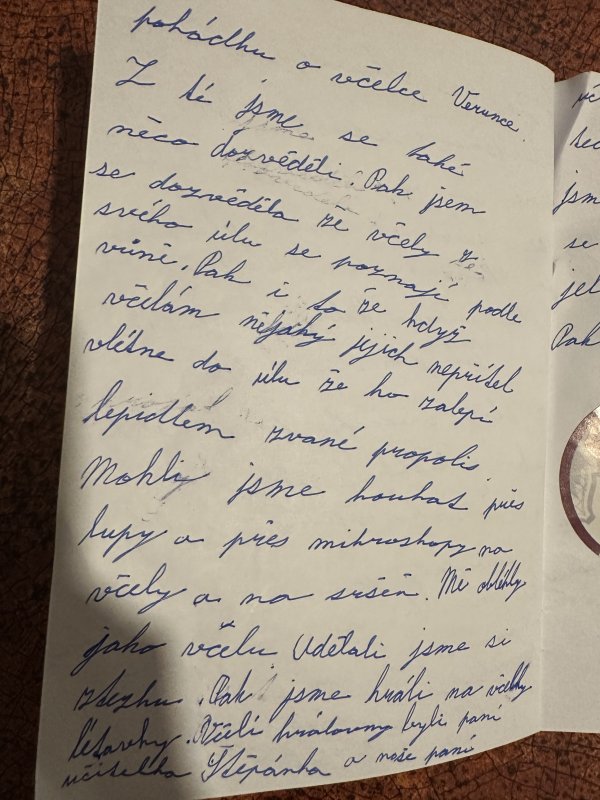 pohádku o včelce Verunce.
Z té jsme se také
něco dozvěděli. Pak jsem
se dozvěděla že včely ze
svého úlu se poznají podle
vůně. Pak i to že když
včelám nějaký jejich nepřítel
vlétne do úlu že ho zalepí
lepidlem zvané propolis.
Mohli jsme koukat přes
lupy a přes mikroskopy na
včely a na sršeň. Mě oblékly
jako včelu Udělali jsme si
stezku. Pak jsme hráli na včelky
létavky. Včelí královny byli paní
učitelka Štěpánka a naše paní
vč
se
jsm
se
jel
Pak